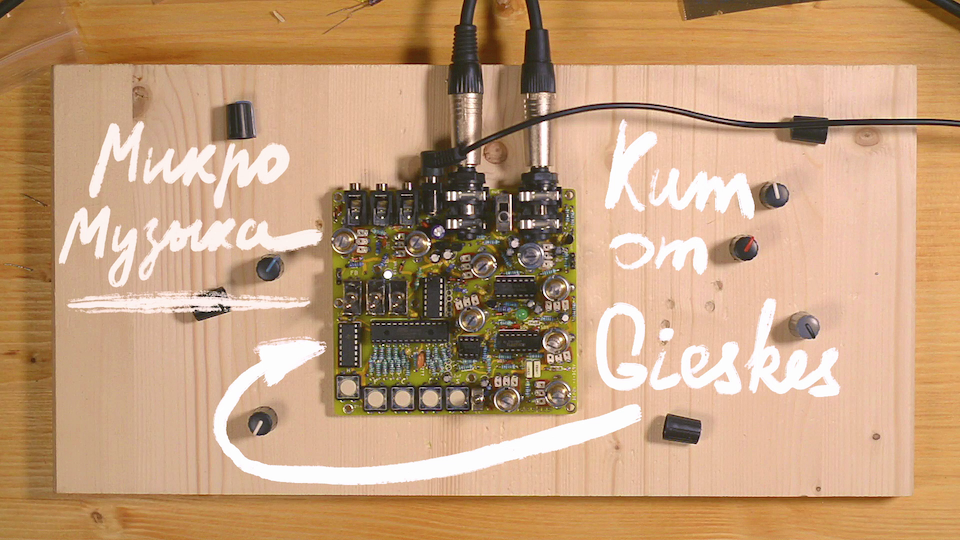 Микро
Музыка
Кит
от
Gieskes